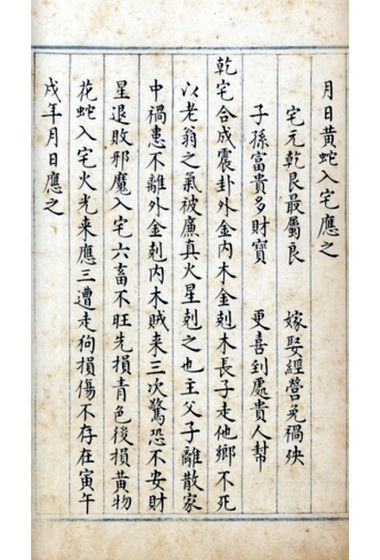 月日黄蛇入宅應之
宅元乾艮最屬良 嫁娶經營免禍殃
子孫富貴多財寶 更喜到處貴人幫
乾宅合成震卦外金内木金剋木長子走他鄉不死
以老翁之氣被廉真火星剋之也主父子離散家
中禍患不離外金剋内木賊来三次驚恐不安財
星退敗邪魔入宅六畜不旺先損青色後損黄物
花蛇入宅火光来應三遭走狗損傷不存在寅午
戌年月日應之